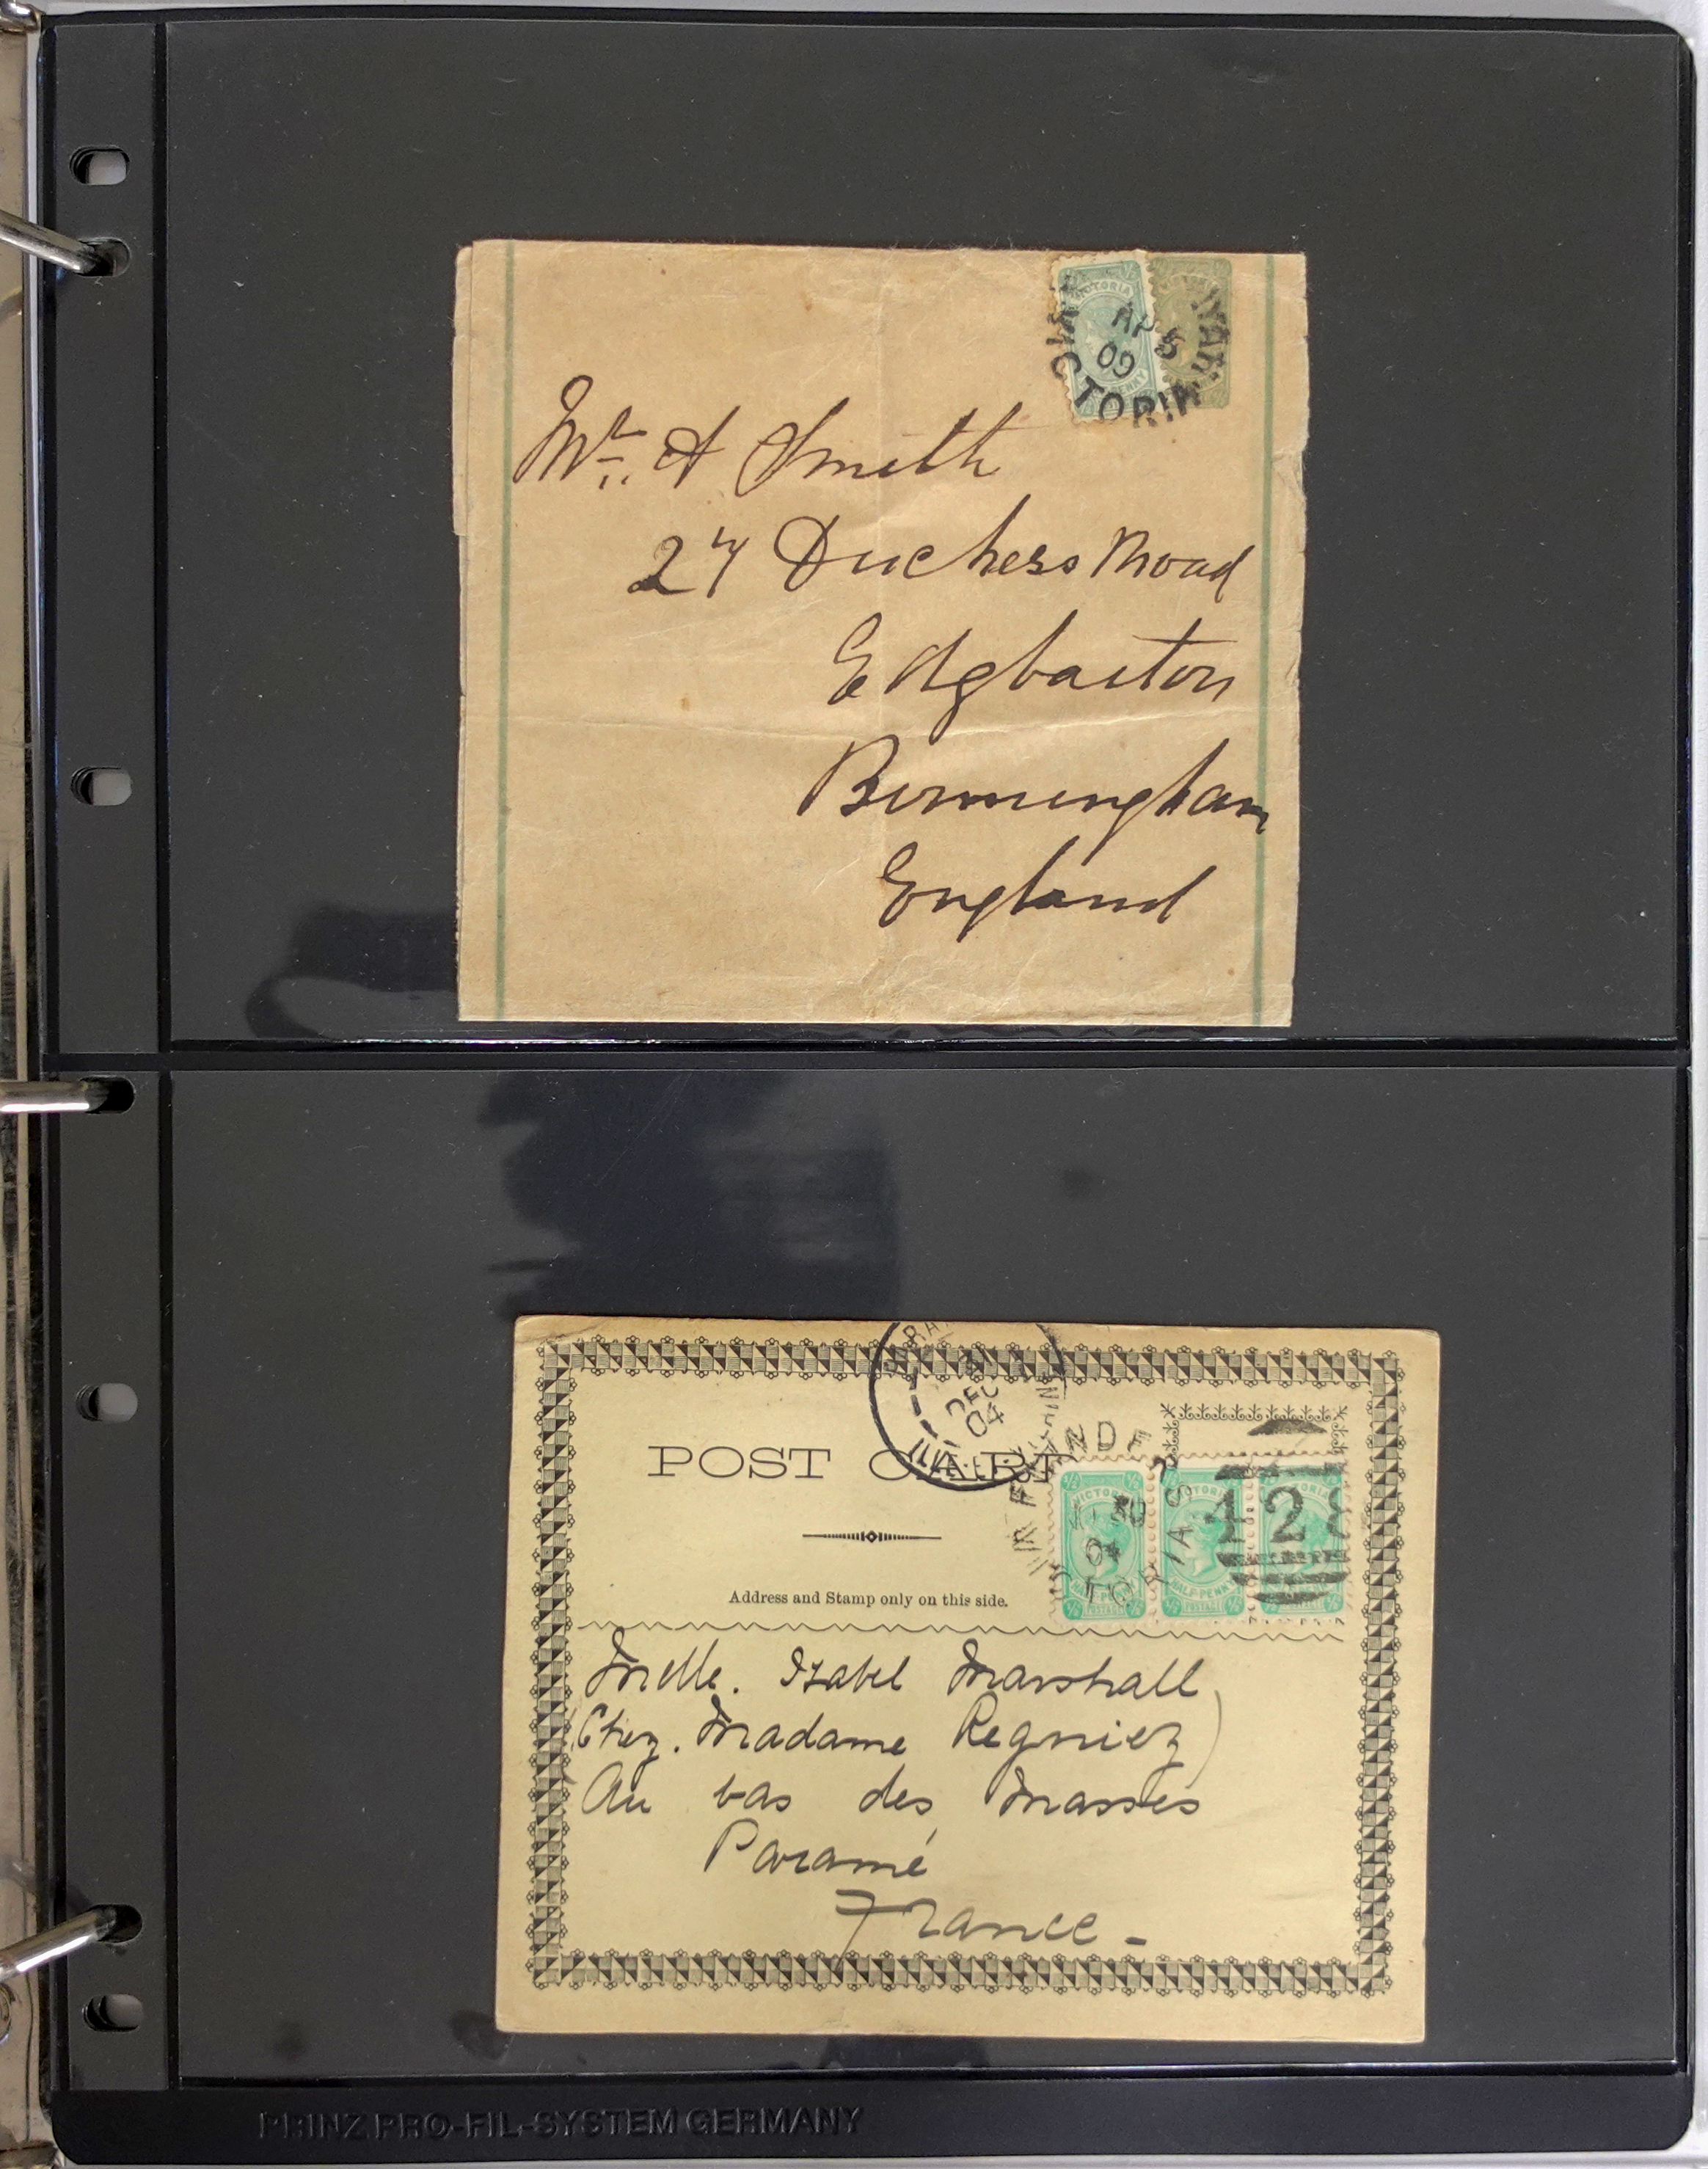 VICTORIA
AP 5
09
VICTORIA
PENNY
Mr. A Smith
27 Duchess Road
Edgbaston
Birmingham
England
DEC
04
POST CARD
VICTORIA
HALF PENNY
POSTAGE
30
04
VICTORIA
128
Address and Stamp only on this side.
Mdlle. Isabel Marshall
(Chez. Madame Regniez)
Au bas des Masses
Paramé
France-
PRINZ PRO-FIL-SYSTEM GERMANY